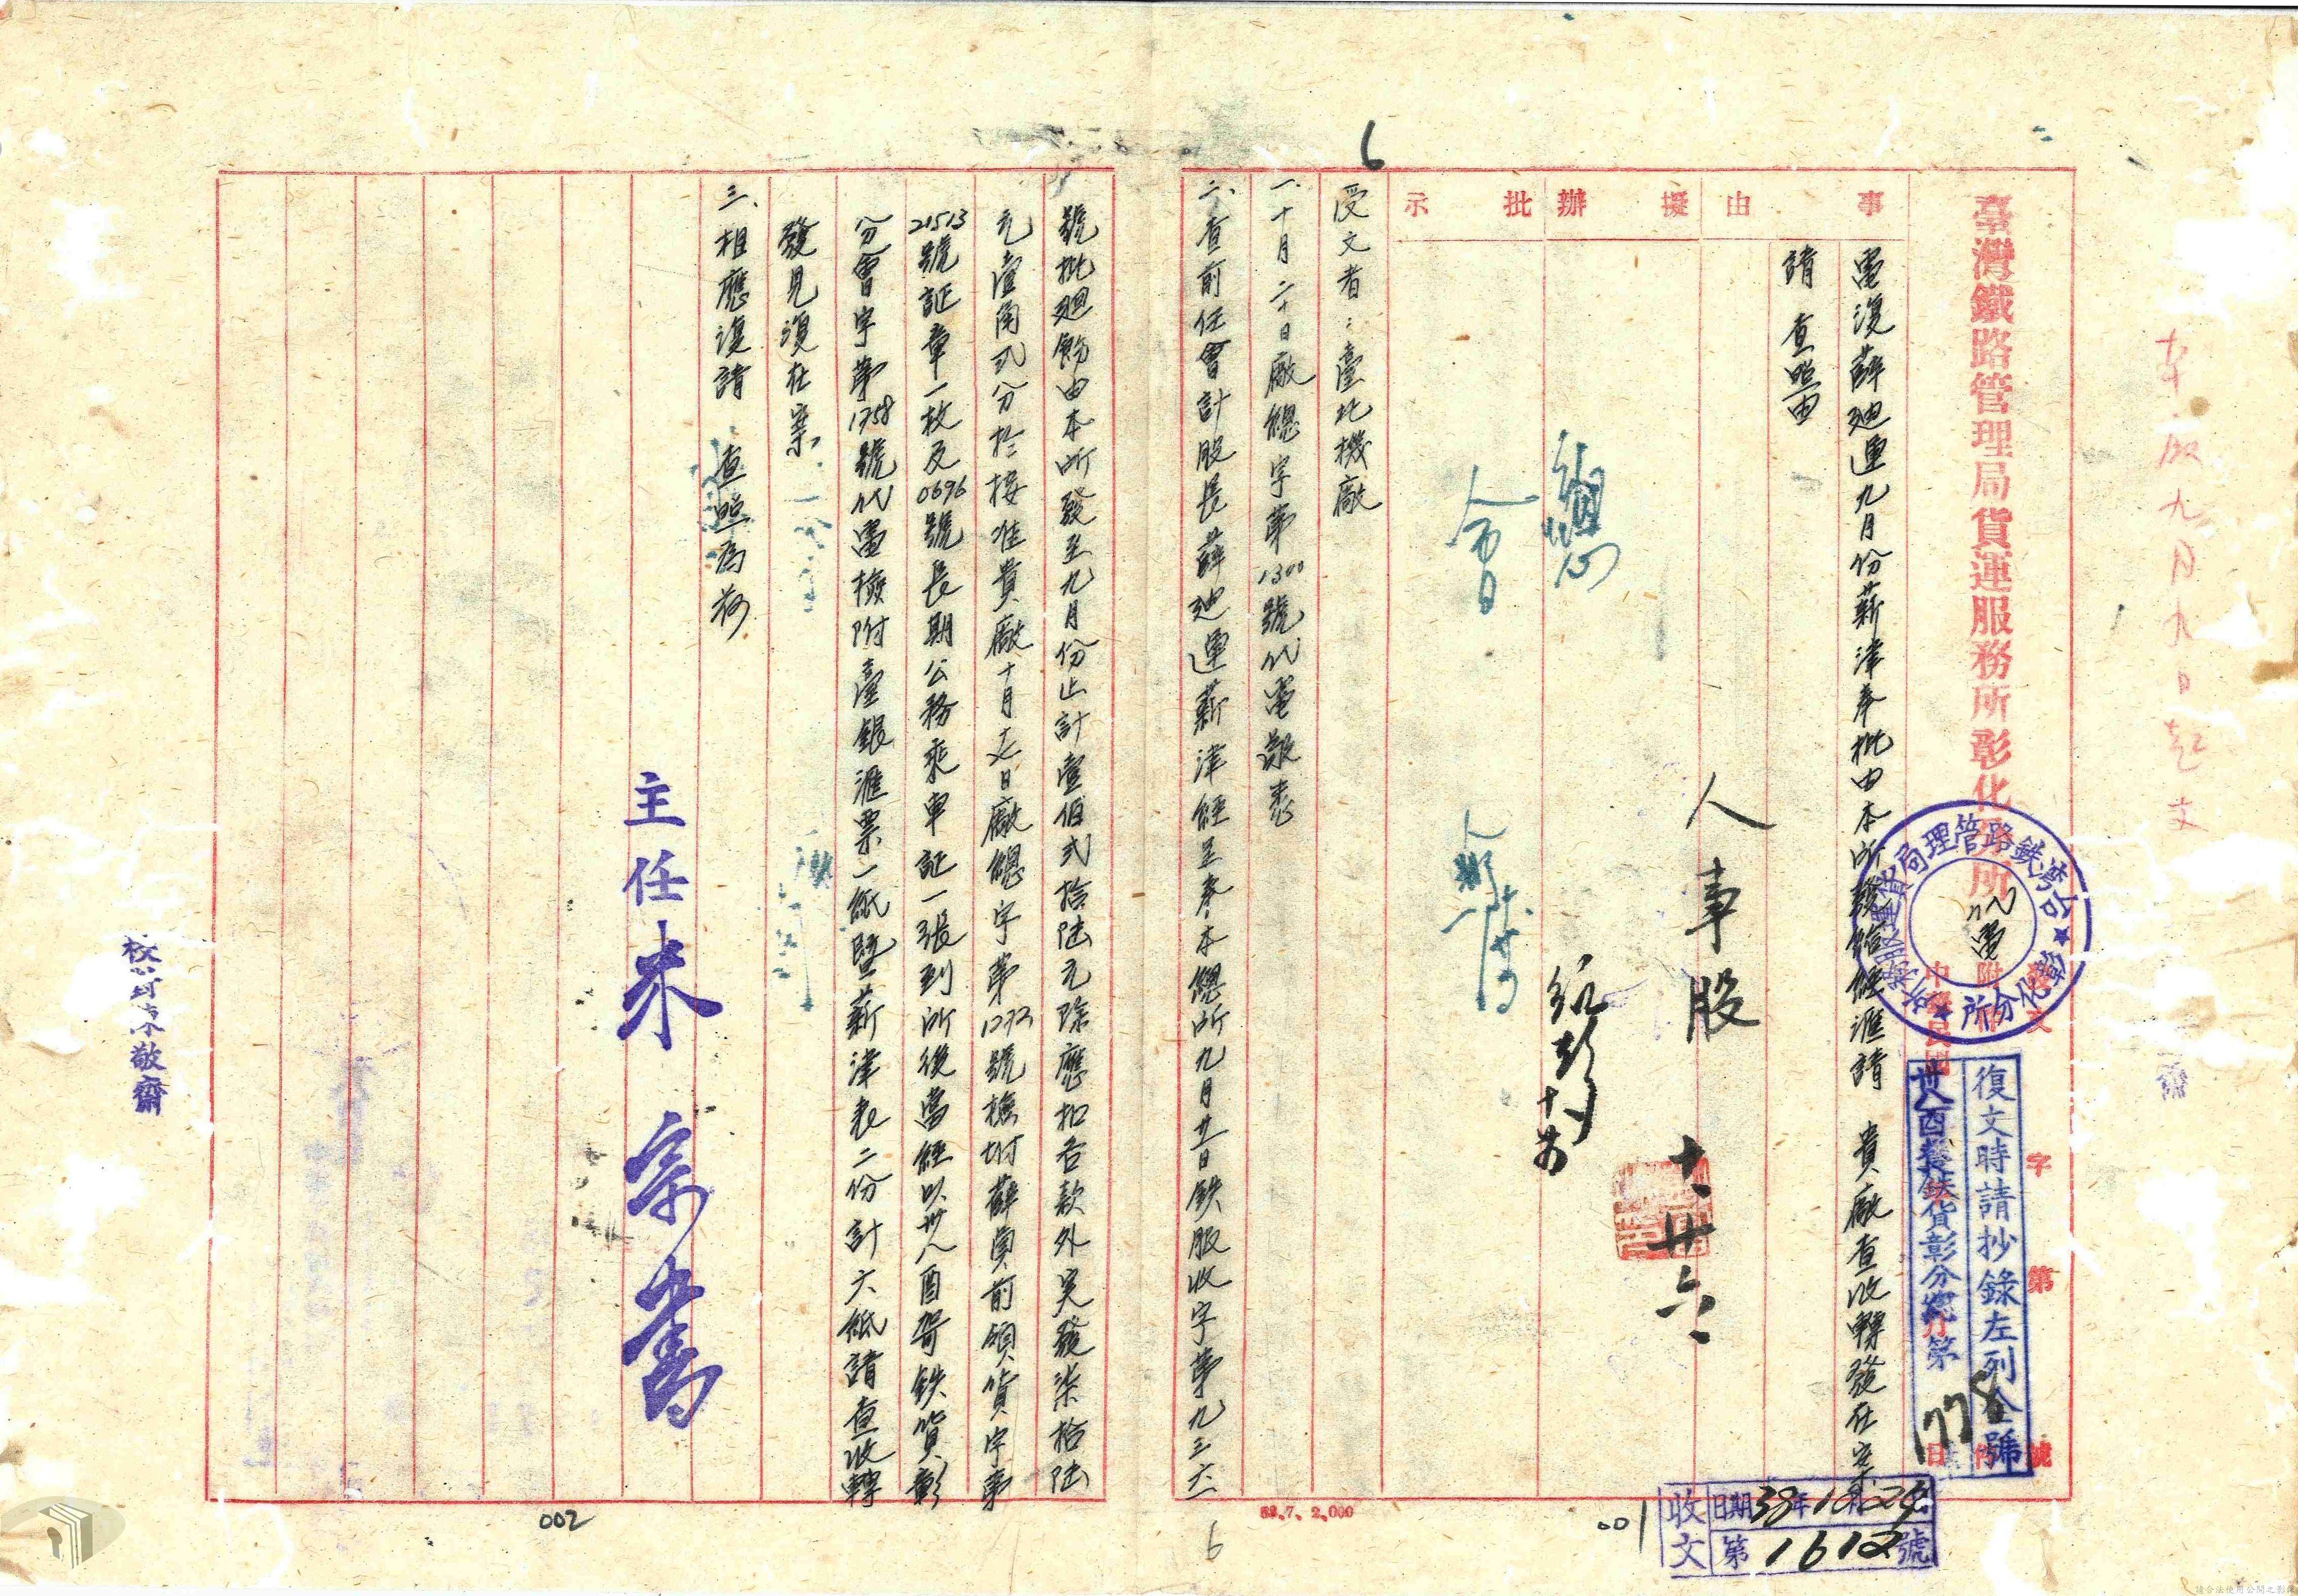 臺灣鐵路管理局貨運服務所彰化分所
代電
台灣鉄路管理局貨運服務所
彰化分所
發文
字
第
號
附
件
中華民國
日
復文時請抄錄左列全號
卅八酉養鉄貨彰分總第
1778
收文
日期38年10月24
第1612號
事
由
擬
辦
批
示
電復薛廸運九月份薪津奉批由本所發給經滙請 貴廠查收轉發在案
請 查照由
人事股
十、廿六、
總
會
受文者：臺北機廠
一、十月二十日廠總字第1300號代電敬悉
二、查前任會計股長薛廸運薪津經呈奉本總所九月廿一日鉄服收字第九三六
號批廻飭由本所發至九月份止計壹佰弍拾陆元除應扣各款外实發柒拾陆
元壹角弍分於接准貴廠十月十七日廠總字第1272號檢附薛員前領貨字第
21513號証章一枚及0696號長期公務乘車証一張到所後當經以卅八酉哿鉄貨彰
分會字第1758號代電檢附臺銀滙票一紙暨薪津表二份計六紙請查收轉
發見復在案
三、相應復請 查照為荷
主任朱
校對
敬齋
38.7.2,000
001
002
6
6